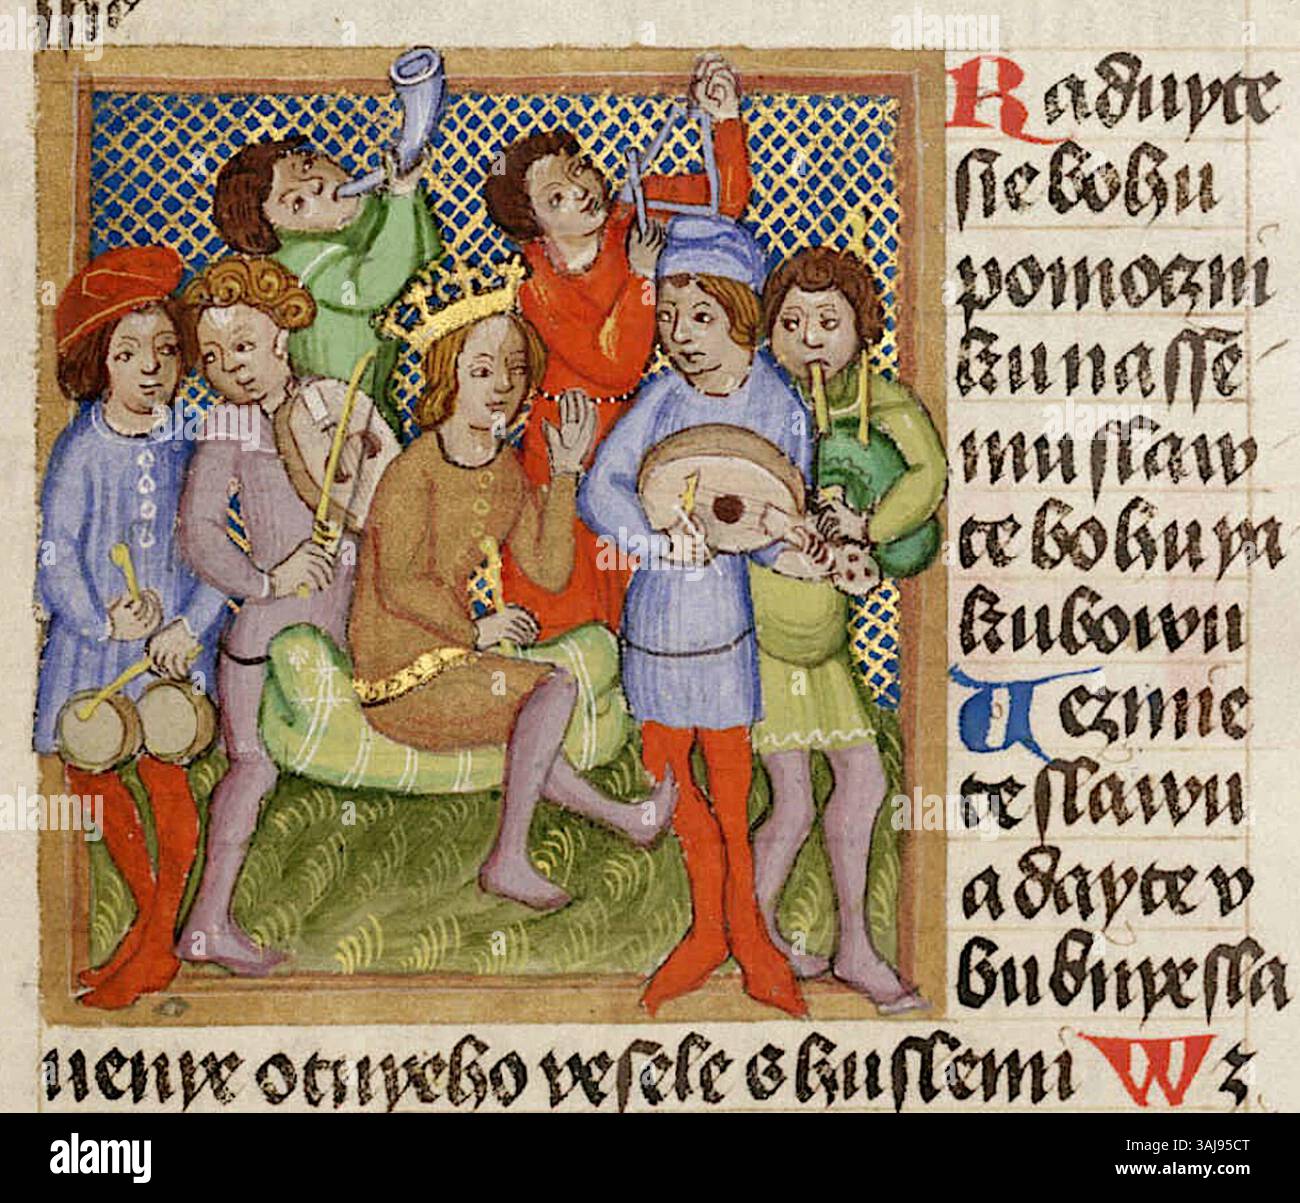 Raduyte
sie bohu
pomoczni
ku nassē
mu slaw
te bohu ya
kubowu
Uezmie
te slawu
a dayte v
bubnyesla
uenye otuyeho vesele s huslemi Wz
alamy
Image ID: 3AJ95CT
www.alamy.com